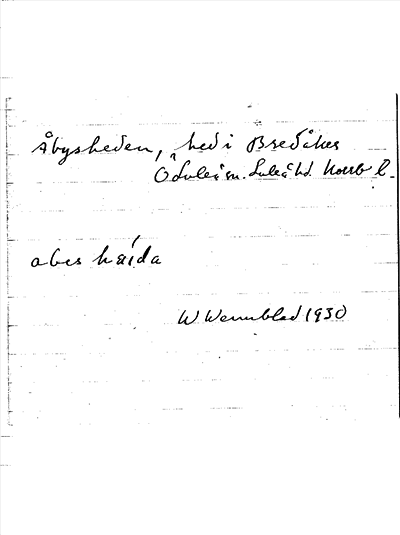 Åbysheden, hed i Bredåker
Ö Luleå sn. Luleå hd. Norrb l.
abes haida
W Wennblad 1930